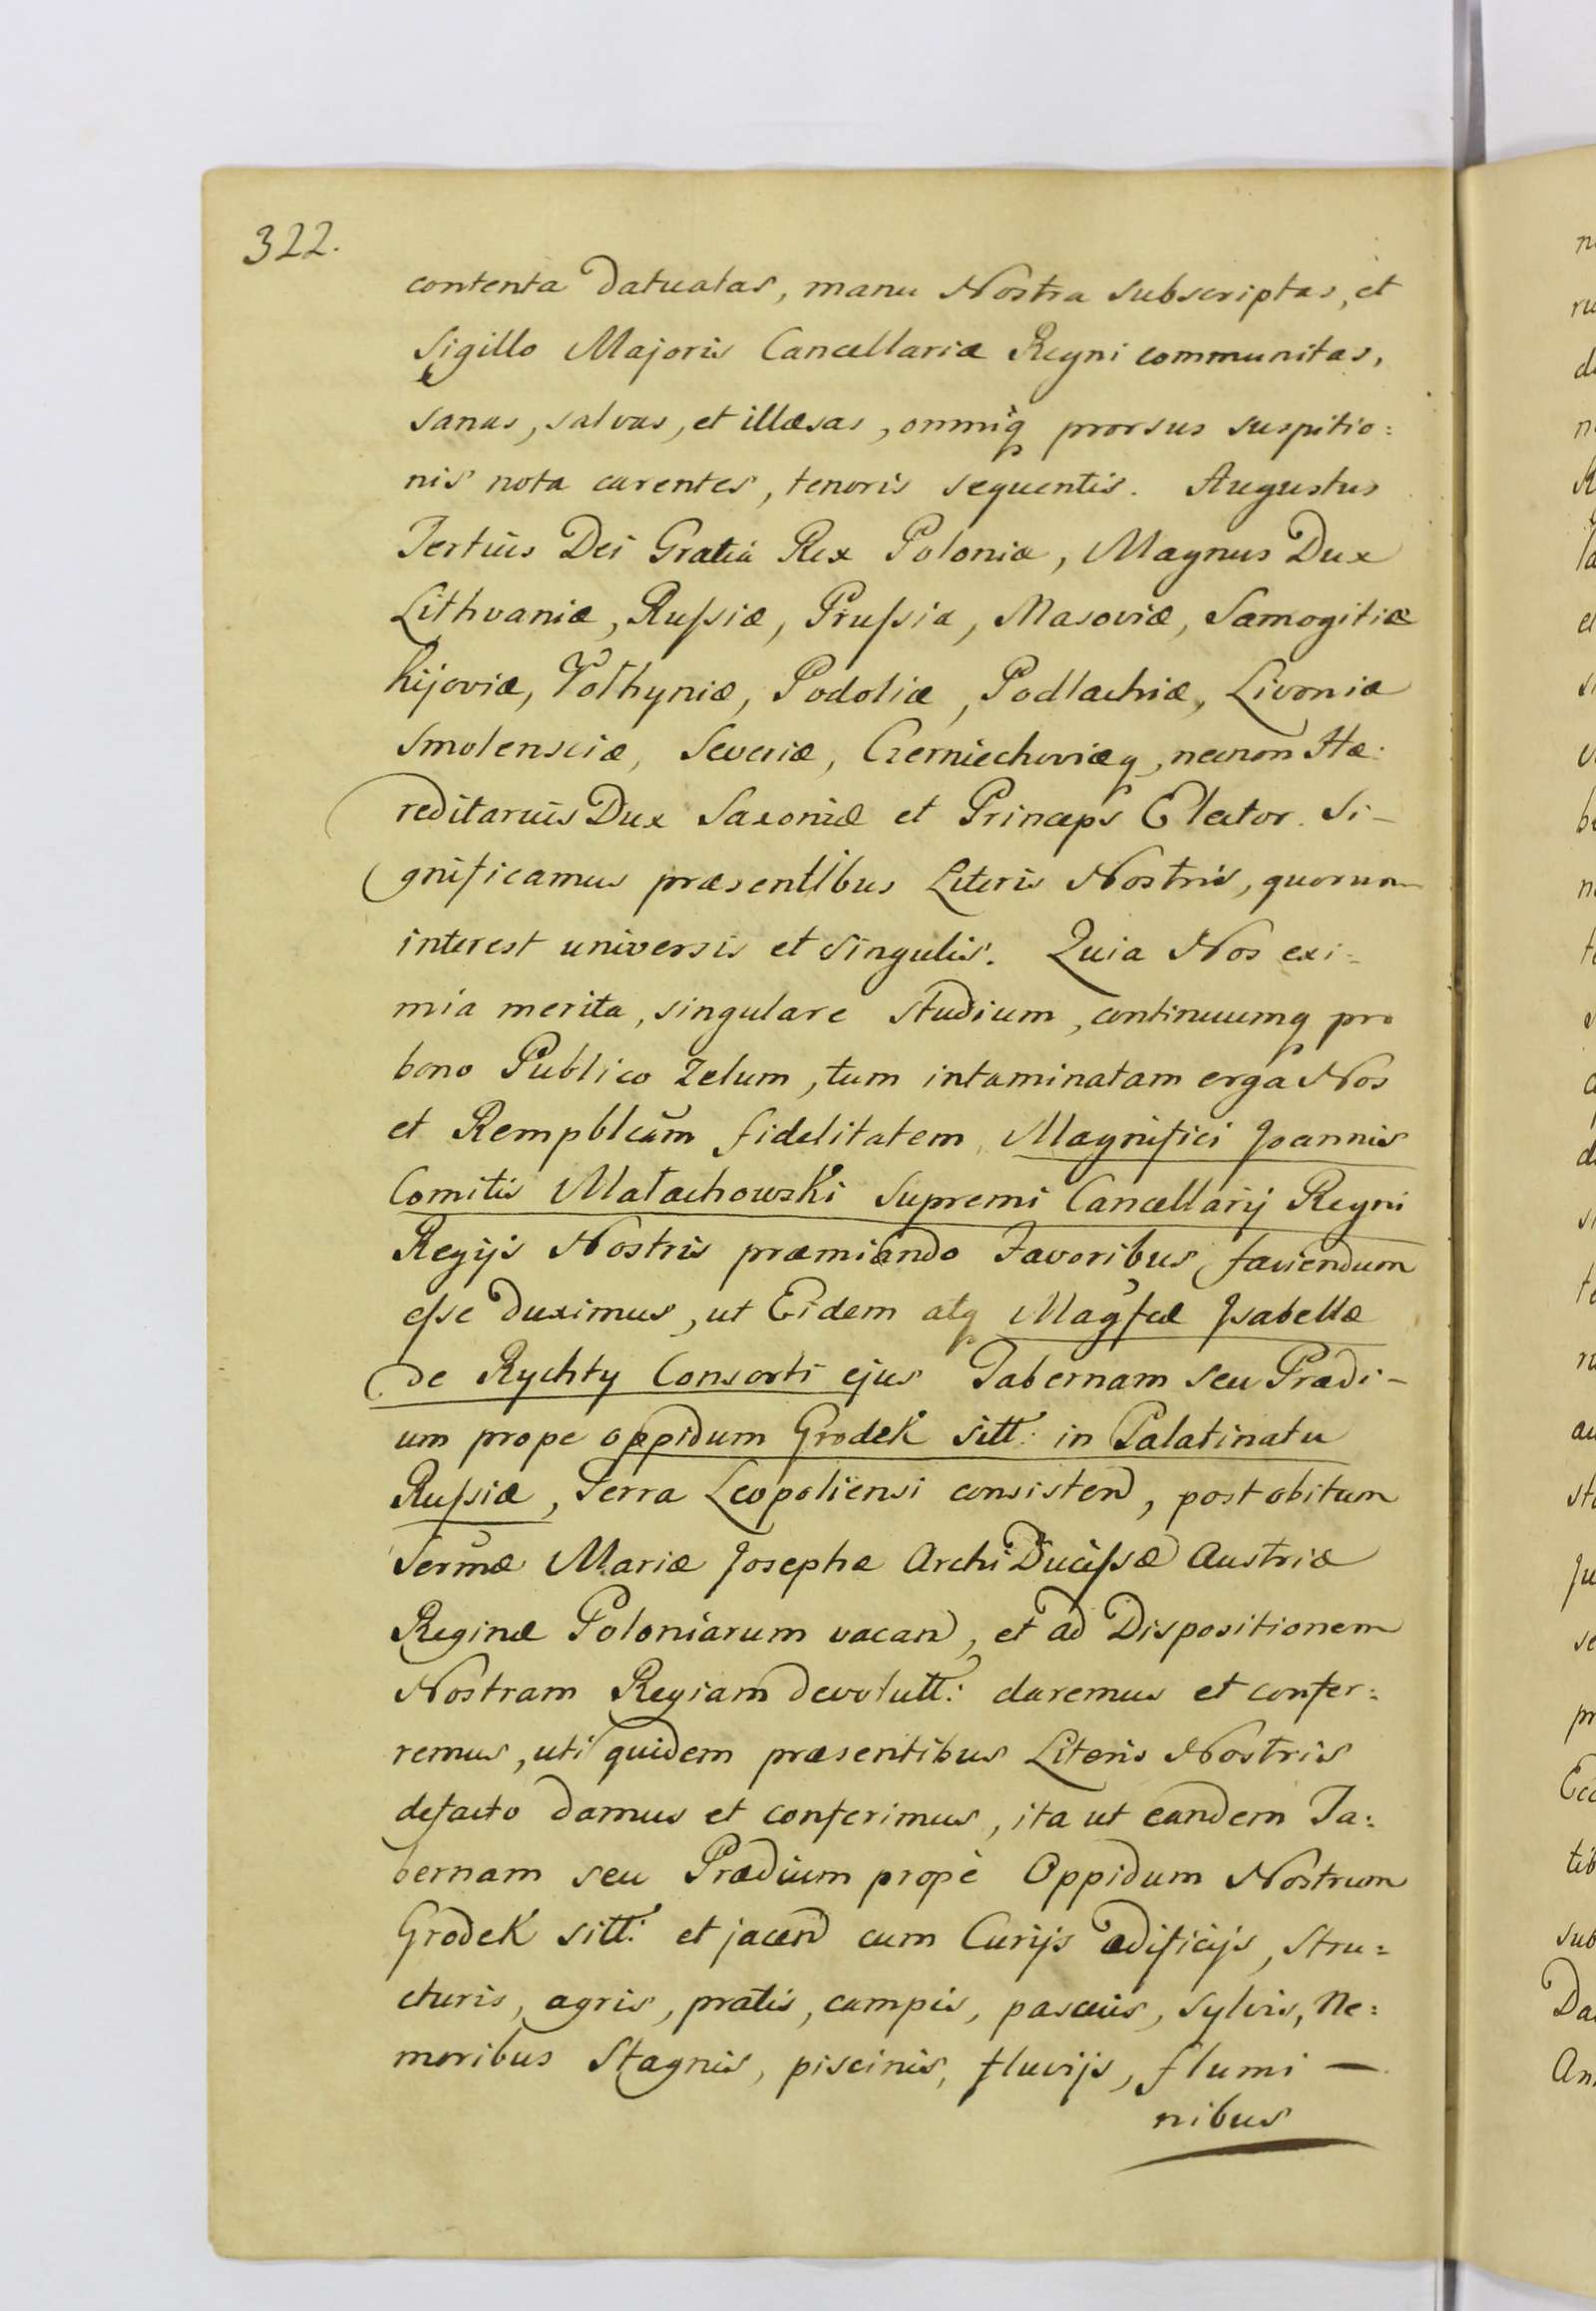 322.
contenta datuatas, manu Nostra subscriptas, et
Sigillo Majoris Cancellariæ Regni communitas,
sanas, salvas, et illæsas, omniq prorsus suspitio:
nis nota carentes, tenoris sequentis. Augustus
Tertius Dei Gratia Rex Poloniæ, Magnus Dux
Lithvaniæ, Rufsiæ, Prufsiæ, Masoviæ, Samogitiæ
Kijoviæ, Vołhyniæ, Podoliæ, Podlachiæ, Livoniæ
Smolensciæ, Severiæ, Czerniechoviæq, necnon Hæ:
reditarius Dux Saxoniæ et Princeps Elector. Si-
gnificamus præsentibus Literis Nostris, quorum
interest universis et singulis. Quia Nos exi:
mia merita, singulare studium, continuumq pro
bono Publico Zelum, tum intaminatam erga Nos
et Rempblcam̃ fidelitatem Magnifici Joannis
Comitis Małachowski Supremi Cancellarij Regni
Regijs Nostris præmiando Favoribus, faciendum
efse duximus, ut Eidem atq Magfcæ Jsabellæ
de Rychty Consorti ejus Tabernam seu Prædi-
um prope oppidum Grodek sitt: in Palatinatu
Rufsiæ, Terra Leopoliensi consisten, post obitum
Serm̃æ Mariæ Josephæ Archi Ducifsæ Austriæ
Reginæ Poloniarum vacan, et ad Dispositionem
Nostram Regiam devolutt: daremus et confer:
remus, uti quidem præsentibus Literis Nostris
defacto damus et conferimus, ita ut eandem Ta:
bernam seu Prædium propè Oppidum Nostrum
Grodek sitt: et jacen cum Curijs ædificijs, stru:
cturis, agris, pratis, campis, pascuis, sylvis, Ne:
moribus Stagnis, piscinis, fluvijs, flumi —
nibus